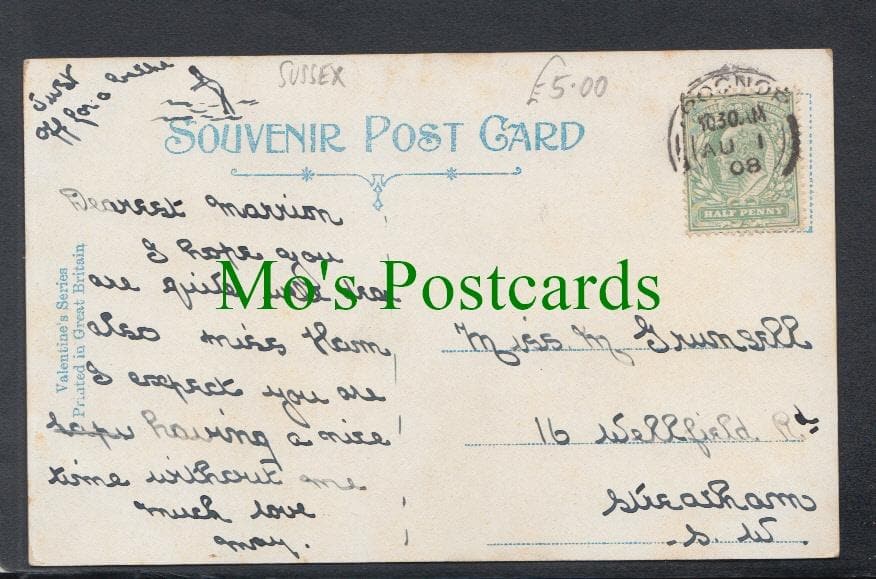 Just
off for a bathe
SUSSEX
£5.00
SOUVENIR POST CARD
BOGNOR
10.30 AM
AU 1
08
HALF PENNY
Valentine's Series
Printed in Great Britain
Dearest Marrion
I hope you
are quite well dear
also miss Ham
I expect you are
having a nice
time without me
much love
may.
Mo's Postcards
Miss M Grunsell
16 Wellfield Rd
Streatham
S. W.